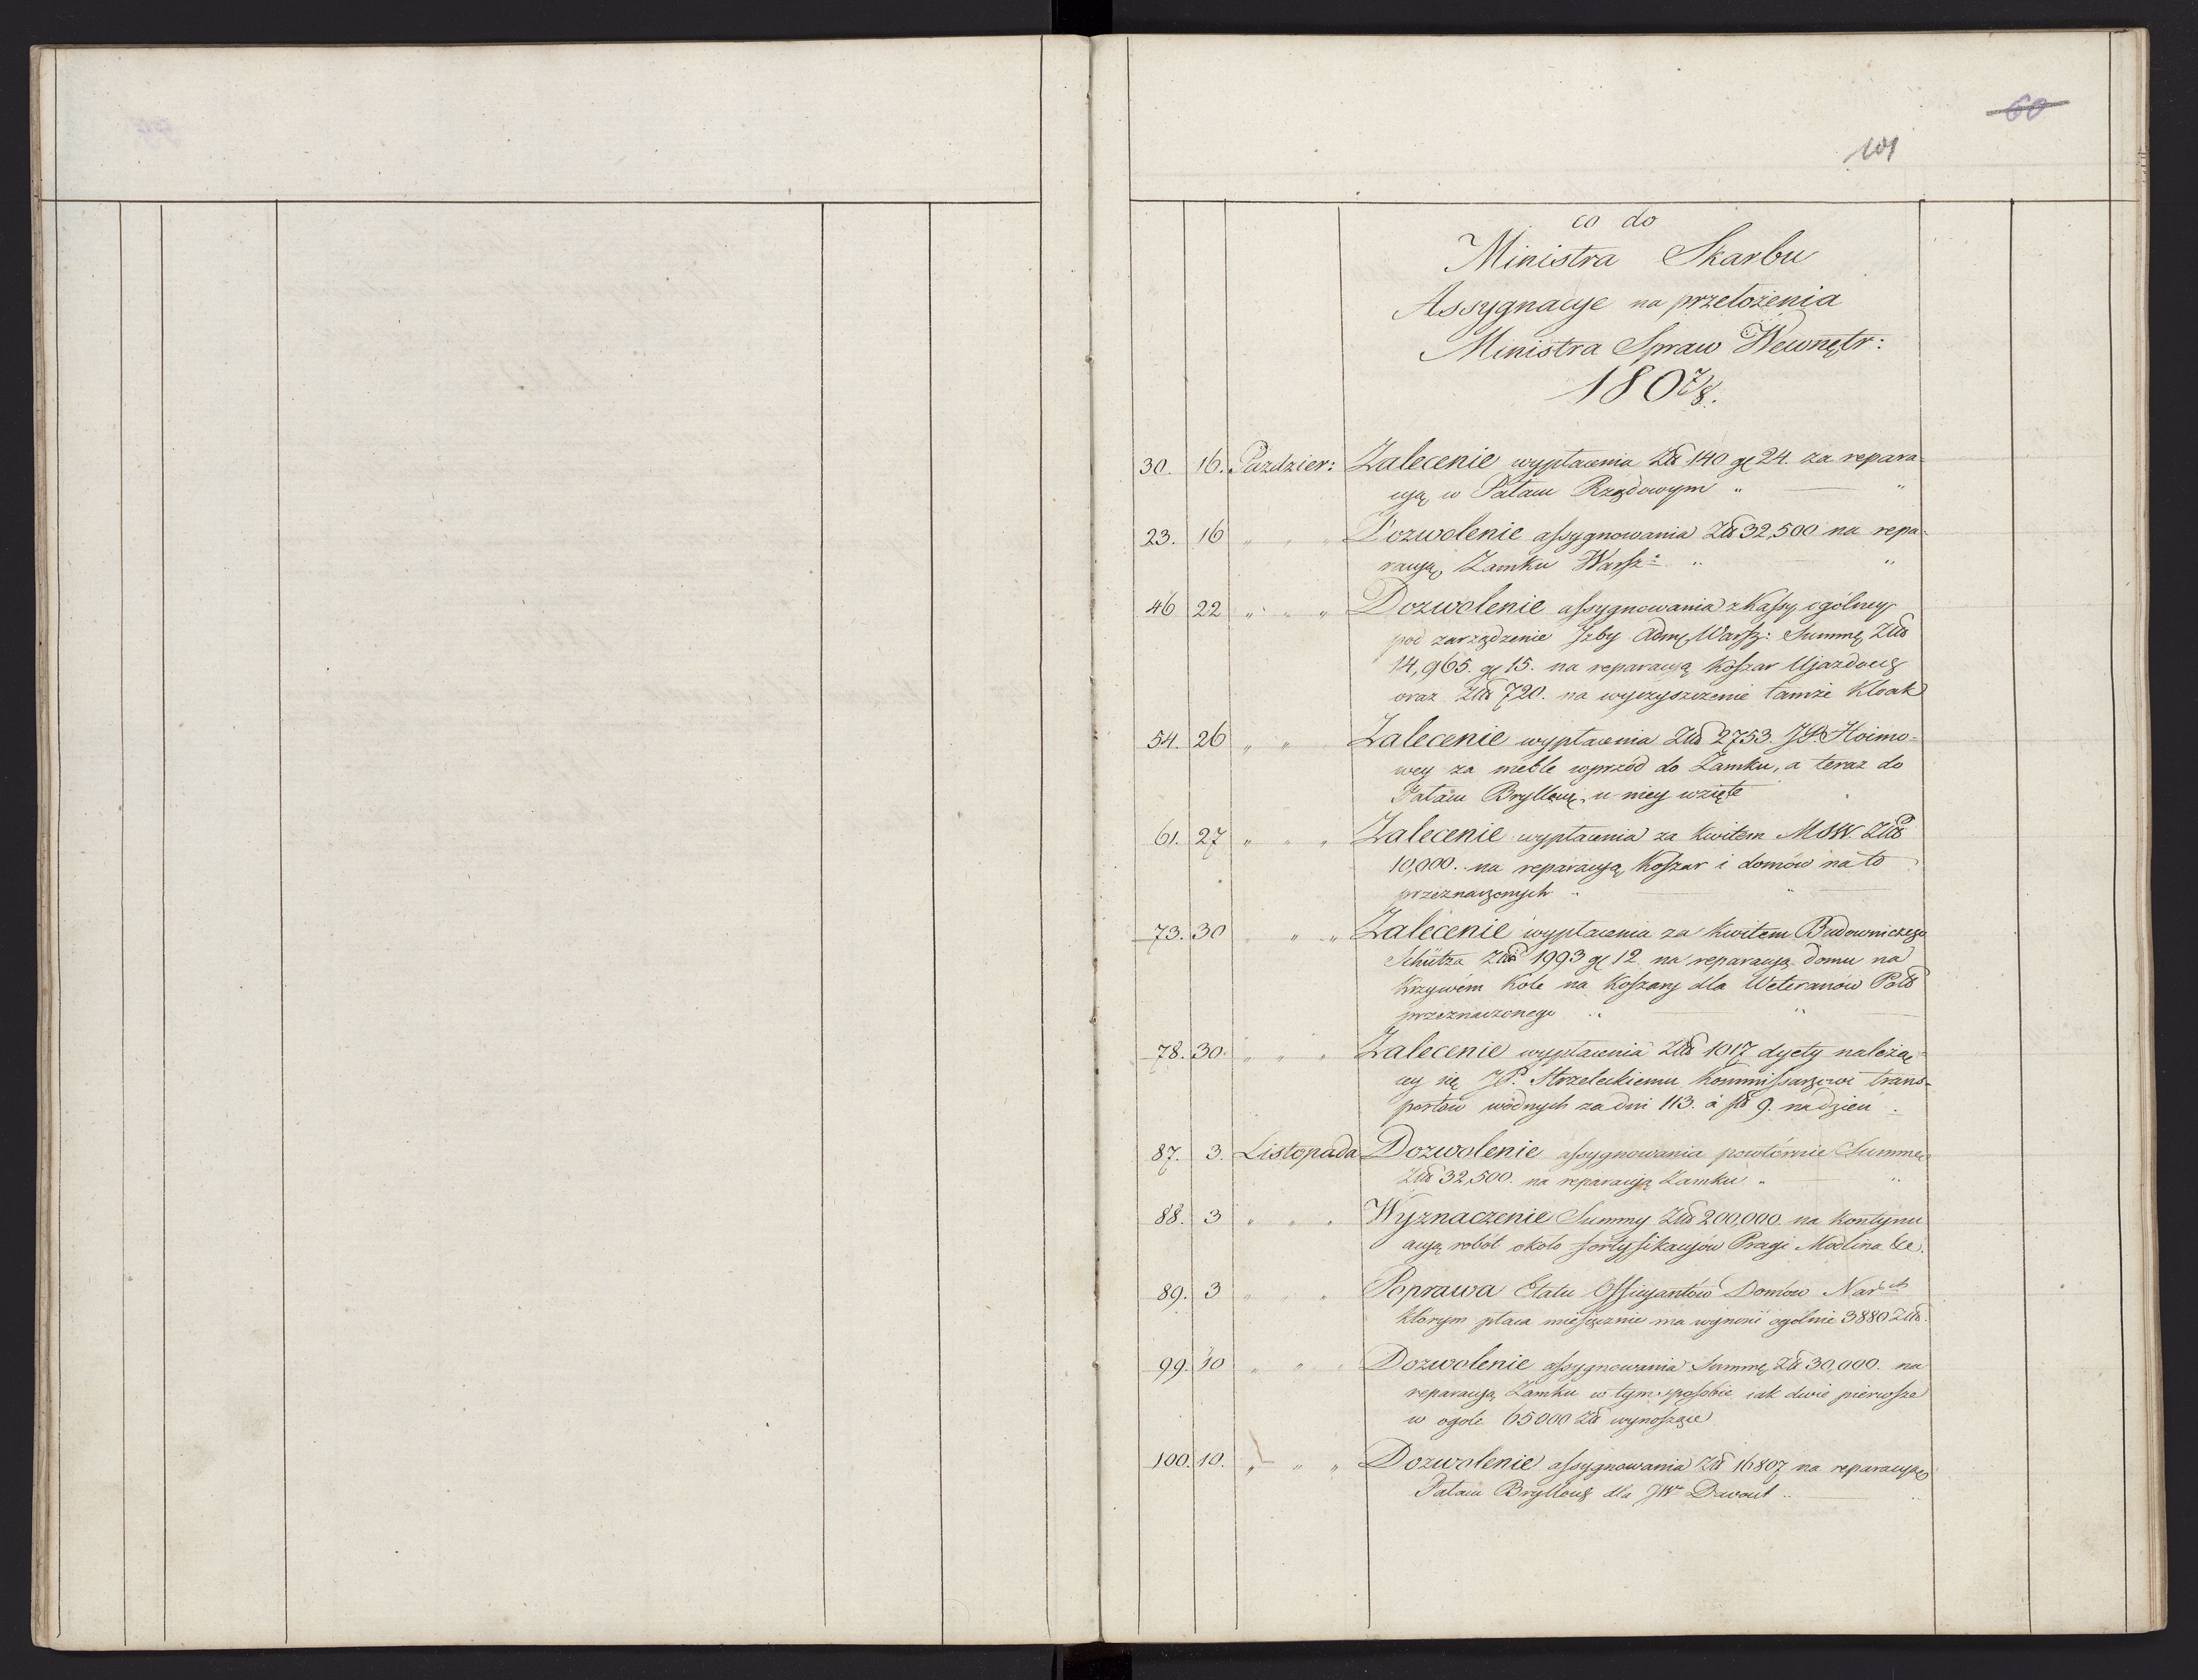 60
101
co do
Ministra Skarbu
Assygnacye na przełożenia
Ministra Spraw Wewnętr:
180 7/8.
30. 16. Pazdzier: Zalecenie wypłacenia Zł 140 gr 24. za repara-
cyą w Pałacu Rządowym " "
23. 16 " " " Dozwolenie assygnowania Zł 32,500 na repa-
racyą Zamku Warsz: " "
46 22 " " " Dozwolenie assygnowania z Kassy ogólney
pod zarządzenie Izby Admę Warsz: Summę Złł
14,965. gr 15. na reparacyą Koszar Ujazdows
oraz Złł 720. na wyczyszczenie tamże Kloak
54. 26 " " Zalecenie wypłacenia Złł 2753. JP. Hoimo-
wey za meble wprzód do Zamku, a teraz do
Pałacu Bryllow, u niey wzięte
61. 27 " " " Zalecenie wypłacenia za kwitem MSW. Złł
10,000. na reparacyą Koszar i domów na to
przeznaczonych " "
73. 30 " " " Zalecenie wypłacenia za kwitem Budowniczego
Schütza Złł 1993 gr 12. na reparacyą domu na
Krzywém Kole na Koszary dla Weteranów Pols
przeznaczonego " "
78. 30. " " " Zalecenie wypłacenia Złł 1017 dyety należą-
cey się JP. Strzeleckiemu Kommissarzowi trans-
portów wodnych za dni 113. à fl 9. na dzień.
87. 3. Listopada Dozwolenie assygnowania powtórnie Summę
Złł 32,500. na reparacyą Zamku " "
88. 3 " " " Wyznaczenie Summy Złł 200,000. na kontynu
acyą robót około fortyfikacyów Pragi Modlina &c.
89. 3 " " " Poprawa Etatu Officyantów Domów Nar
którym płaca miesięcznie ma wynosić ogólnie 3880 Złł.
99. 10 " " " Dozwolenie assygnowania Summę Zł 30,000. na
reparacyą Zamku w tym sposobie iak dwie pierwsze
w ogóle 65000 Zł wynoszące
100. 10. " " " Dozwolenie assygnowania Zł 16807 na reparacyą
Pałacu Bryllows dla JW Davout " "